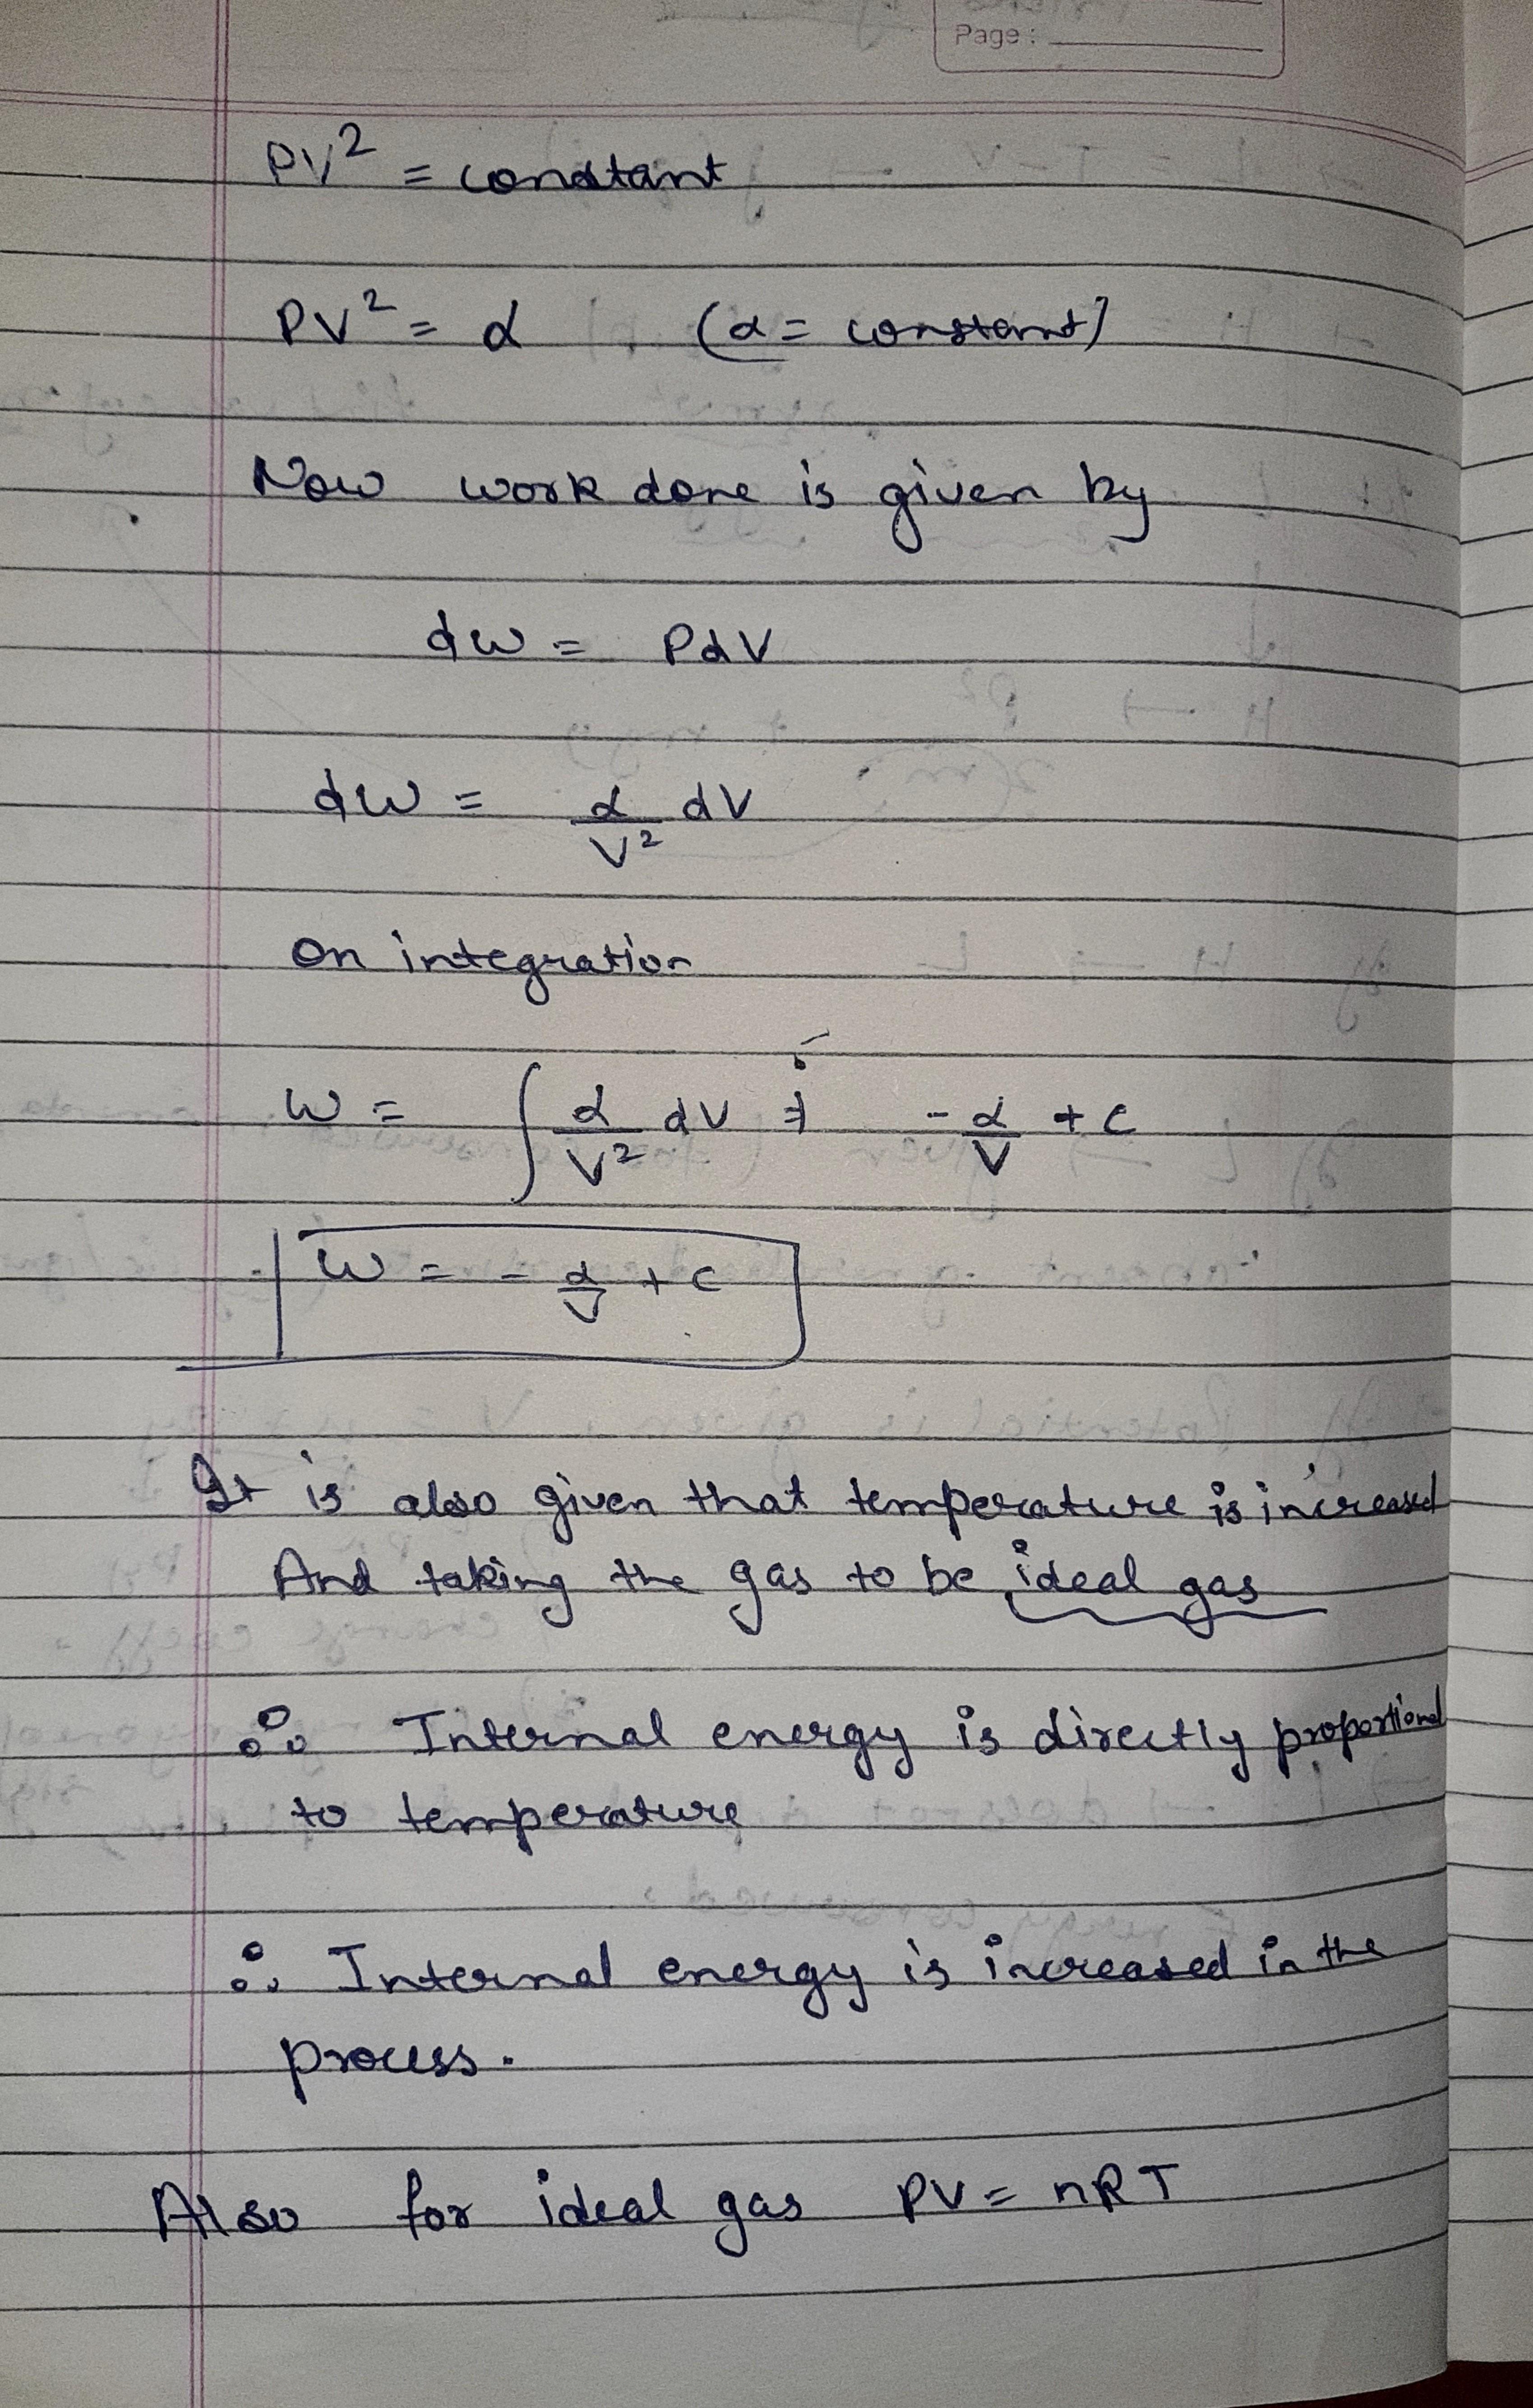 Page :
PV² = constant
PV² = α (α = constant)
Now work done is given by
dw = PdV
dW = α/V² dV
on integration
W = ∫ α/V² dV ⇒ -α/V + C
W = -α/V + C
It is also given that temperature is increased
And taking the gas to be ideal gas
∴ Internal energy is directly proportional
to temperature
∴ Internal energy is increased in the
process.
Also for ideal gas PV = nRT